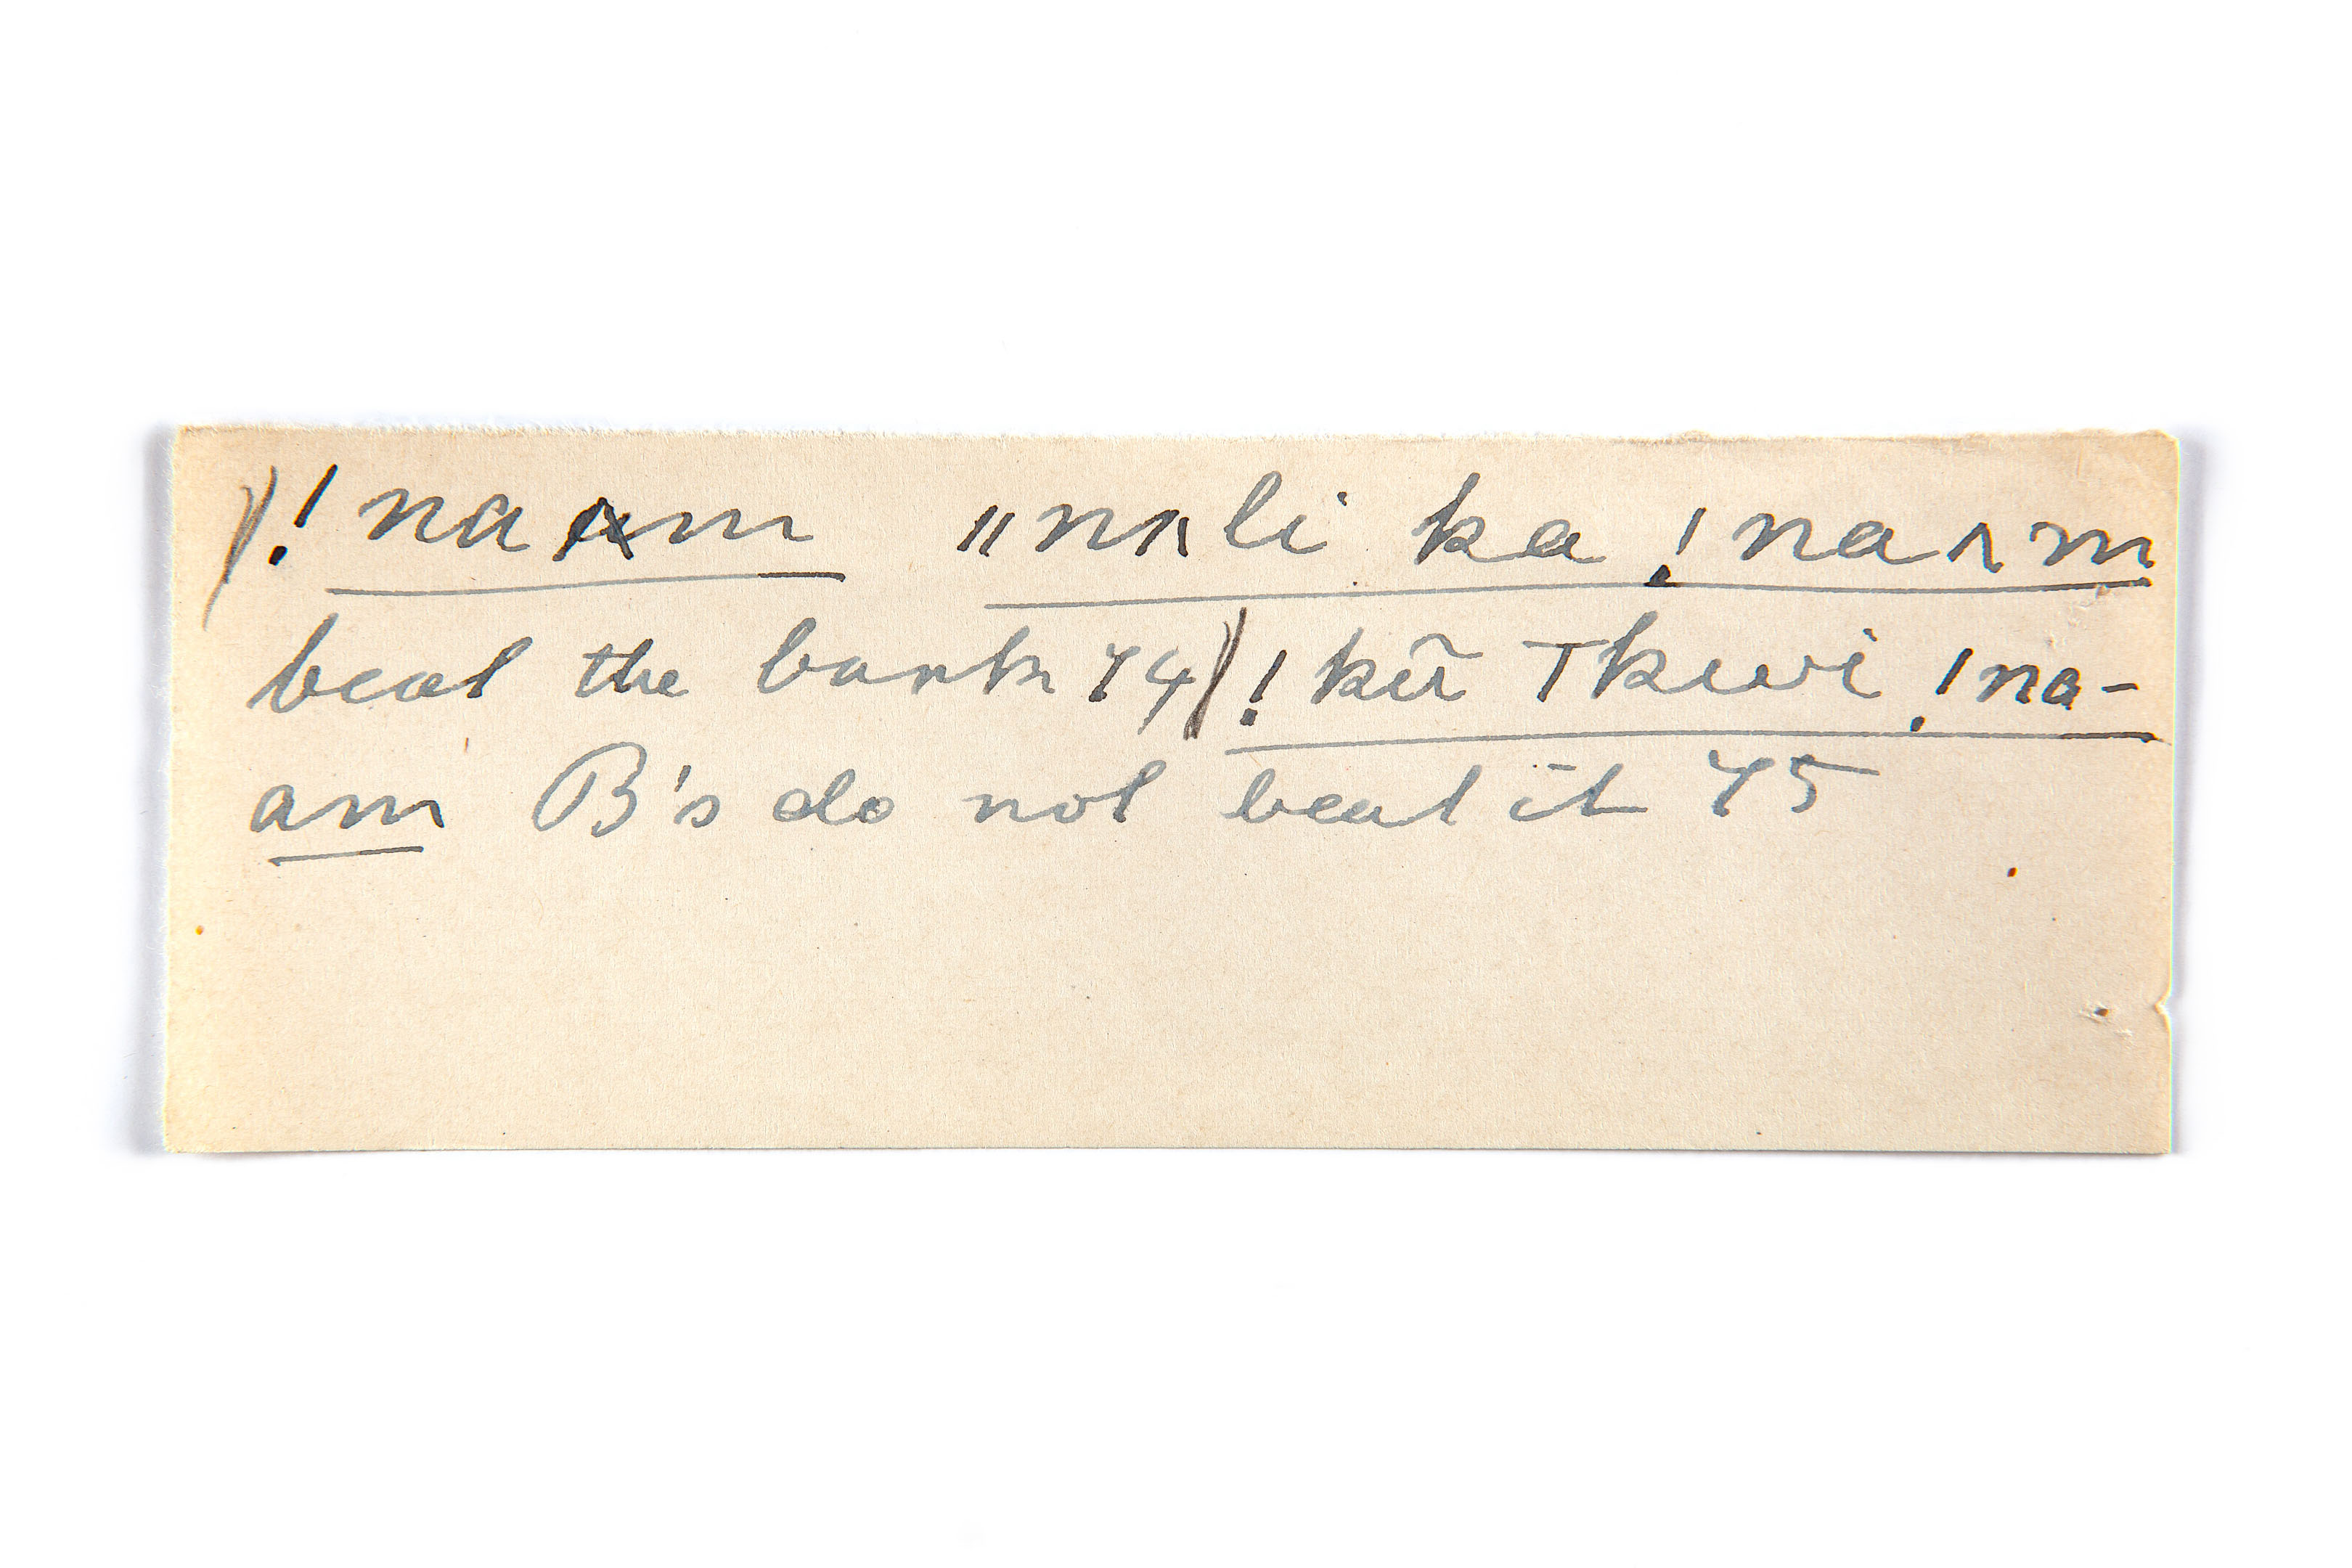 )! naʌm ıınʌli ka !naʌm
beat the bark 74) ! kũ Tkwi !na-
am B's do not beat it 75